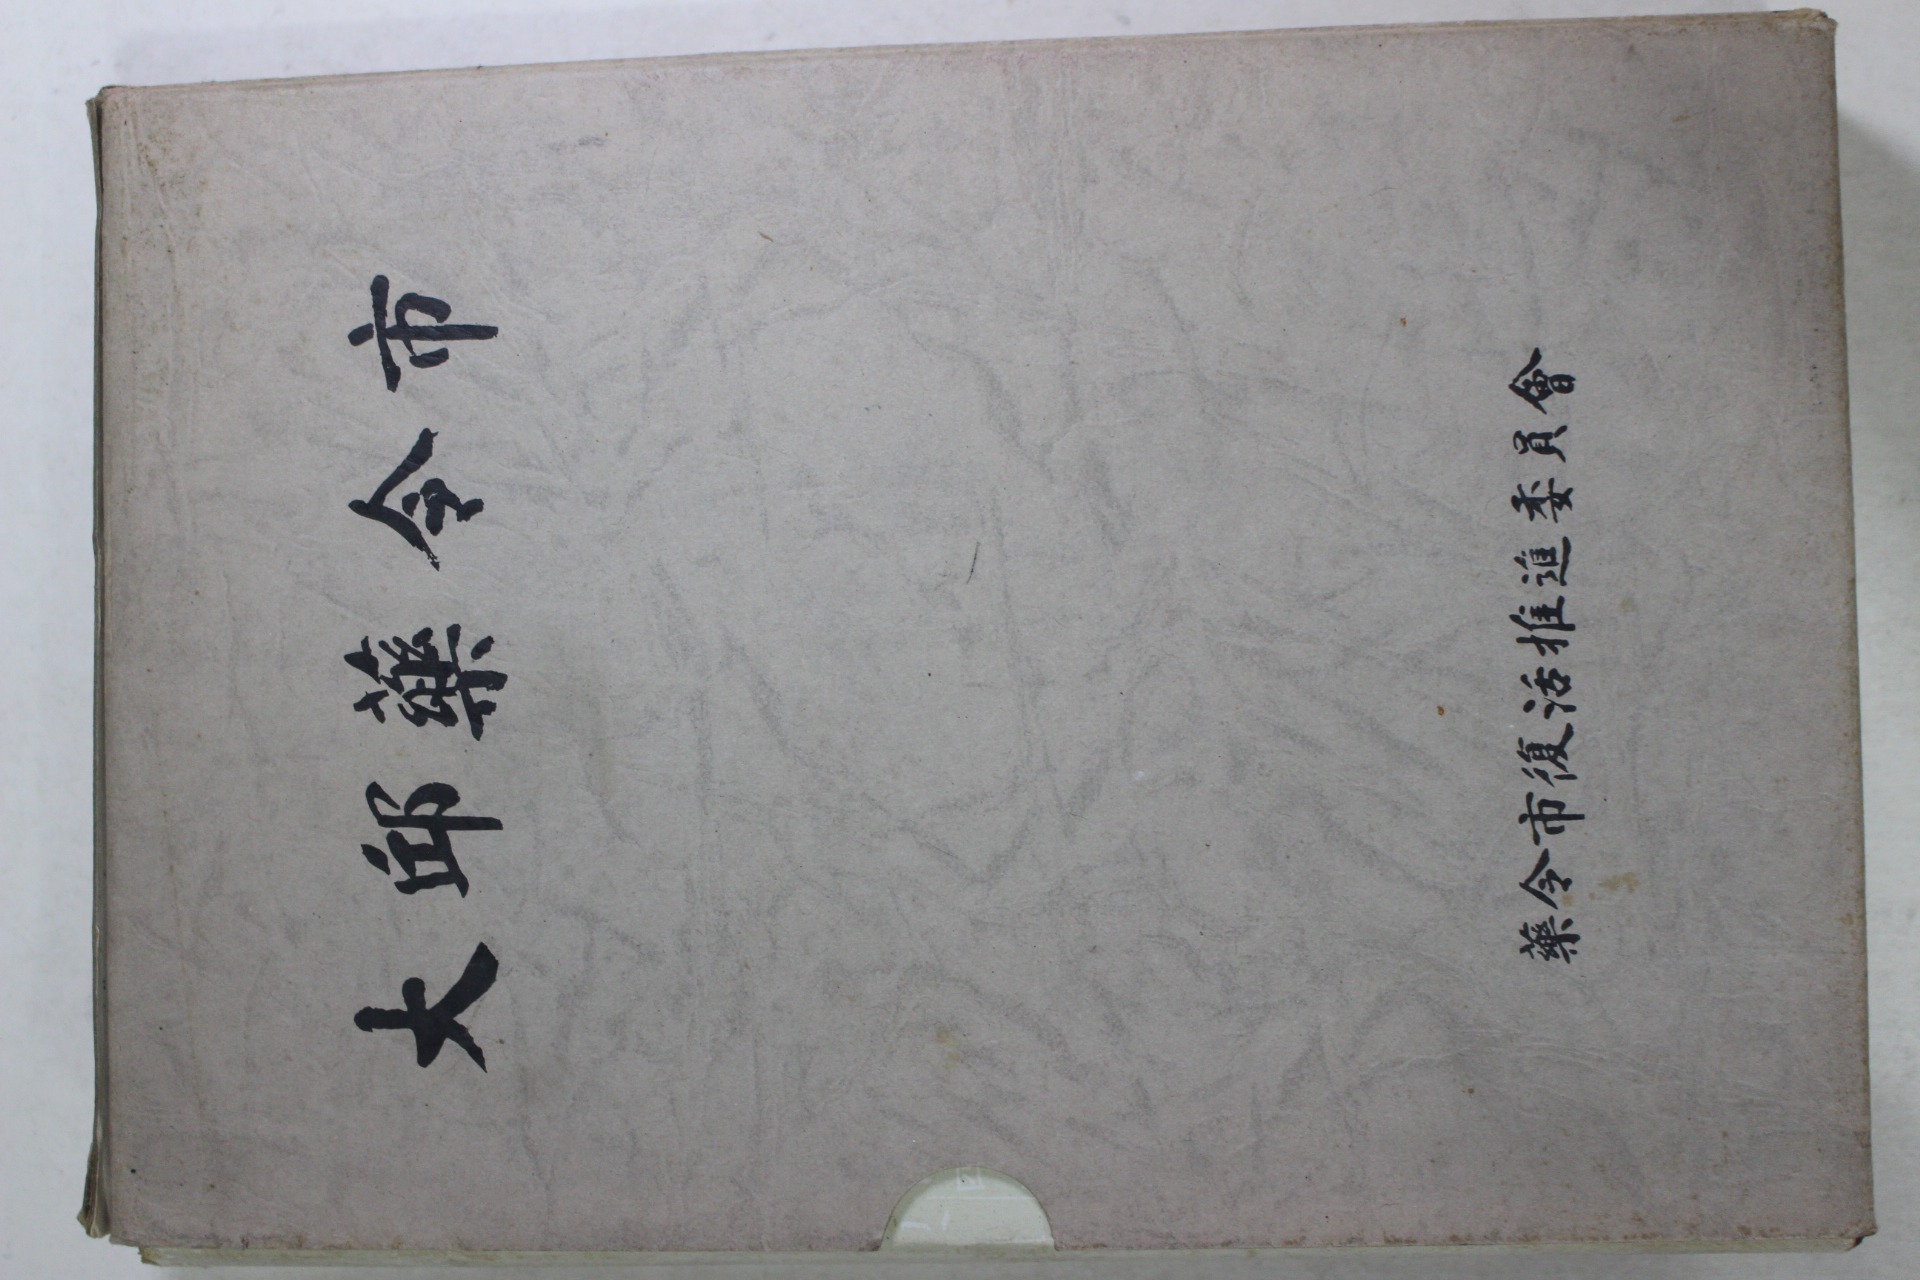 大邱藥令市
藥令市復活推進委員會